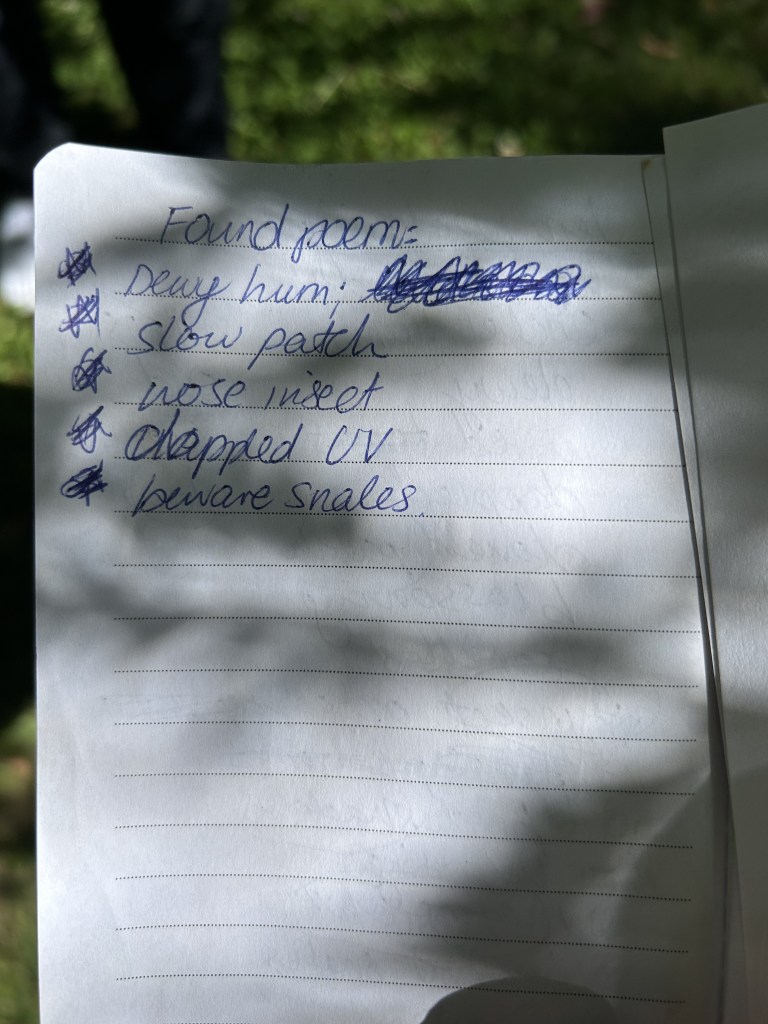 Found poem:
Dewy hum;
slow patch
nose insect
Chapped UV
beware snales.